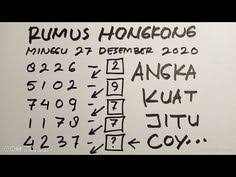 RUMUS HONGKONG
MINGGU 27 DESEMBER 2020
0226 - 2 ANGKA
5102 - 9 KUAT
7409 - 7 JITU
1173 - 7
4237 - ? ← COY...